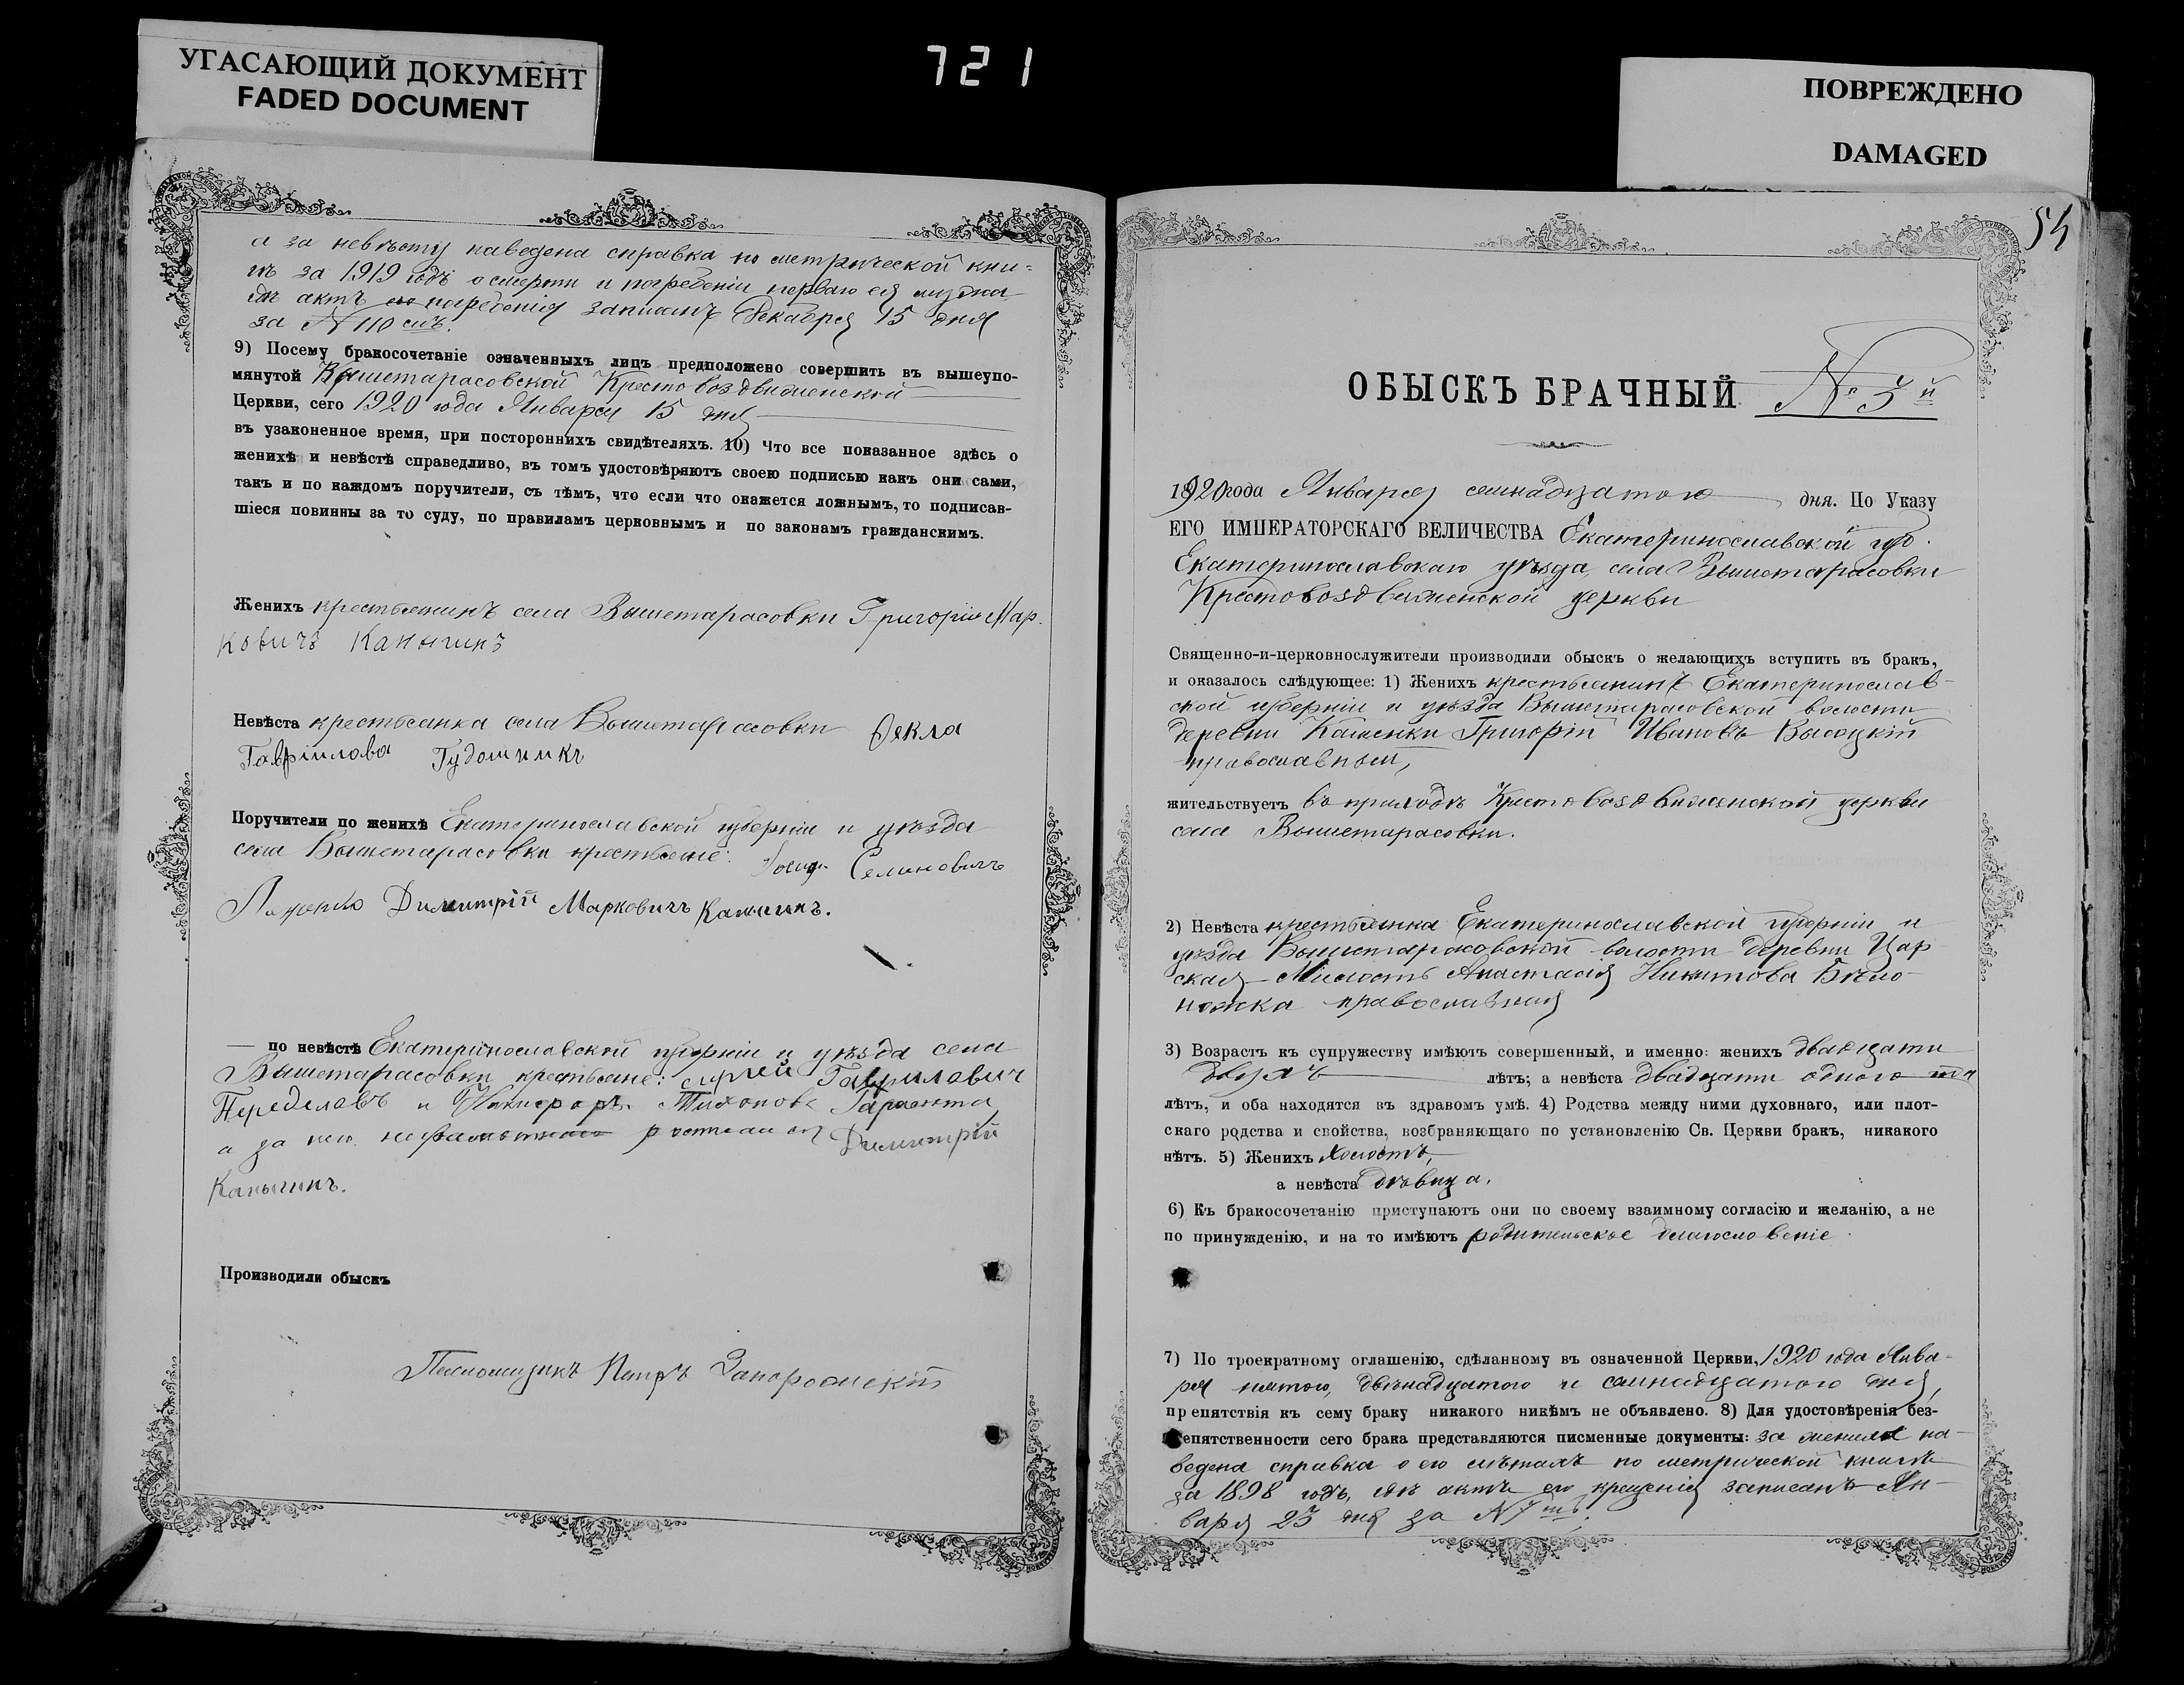 УГАСАЮЩИЙ ДОКУМЕНТ
FADED DOCUMENT
721
ПОВРЕЖДЕНО
DAMAGED
а за невѣсту наведена справка по метрической кни-
гѣ за 1919 годъ о смерти и погребеніи перваго ея мужа
гдѣ актъ его погребенія записанъ Декабря 15 дня
за № 110 смъ.
9) Посему бракосочетаніе означенныхъ лицъ предположено совершить въ вышеупо-
мянутой Вышетарасовской Крестовоздвиженской
Церкви, сего 1920 года Января 15 дня
въ узаконенное время, при постороннихъ свидѣтеляхъ. 10) Что все показанное здѣсь о
женихѣ и невѣстѣ справедливо, въ томъ удостовѣряютъ своею подписью какъ они сами,
такъ и по каждомъ поручители, съ тѣмъ, что если что окажется ложнымъ, то подписав-
шіеся повинны за то суду, по правиламъ церковнымъ и по законамъ гражданскимъ.
Женихъ крестьянинъ села Вышетарасовки Григорій Мар-
ковичъ Каныгинъ
Невѣста крестьянка села Вышетарасовки Фекла
Гавріилова
Поручители по женихѣ Екатеринославской губерніи и уѣзда
села Вышетарасовки крестьяне: Семиновичъ
Димитрій Марковичъ Каныгинъ.
— по невѣстѣ Екатеринославской губерніи и уѣзда села
Вышетарасовки крестьяне: Сергей Гаврилович
и Никифоръ Тихонов
а за нею неграмотною Димитрій
Каныгинъ.
Производили обыскъ
Псаломщикъ Петръ Запорожскій
54
ОБЫСКЪ БРАЧНЫЙ № 3й
1920 года Января семнадцатого дня. По Указу
ЕГО ИМПЕРАТОРСКАГО ВЕЛИЧЕСТВА Екатеринославской губ.
Екатеринославскаго уѣзда, села Вышетарасовки
Крестовоздвиженской церкви
Священно-и-церковнослужители производили обыскъ о желающихъ вступить въ бракъ,
и оказалось слѣдующее: 1) Женихъ крестьянинъ Екатеринослав-
ской губерніи и уѣзда Вышетарасовской волости
деревни Каменки Григорій Ивановъ Высоцкій
православный,
жительствуетъ въ приходѣ Крестовоздвиженской церкви
села Вышетарасовки.
2) Невѣста крестьянка Екатеринославской губерніи и
уѣзда Вышетарасовской волости деревни Цар-
ская-Милость Анастасія Никитова Бѣло-
ножка православная
3) Возрастъ къ супружеству имѣютъ совершенный, и именно: женихъ двадцати
двухъ лѣтъ; а невѣста двадцати одного
лѣтъ, и оба находятся въ здравомъ умѣ. 4) Родства между ними духовнаго, или плот-
скаго родства и свойства, возбраняющаго по установленію Св. Церкви бракъ, никакого
нѣтъ. 5) Женихъ холостъ,
а невѣста дѣвица.
6) Къ бракосочетанію приступаютъ они по своему взаимному согласію и желанію, а не
по принужденію, и на то имѣютъ родительское благословеніе.
7) По троекратному оглашенію, сдѣланному въ означенной Церкви, 1920 года Янва-
ря пятого, двѣнадцатого и семнадцатого дня,
препятствія къ сему браку никакого никѣмъ не объявлено. 8) Для удостовѣренія без-
епятственности сего брака представляются писменные документы: за жениха на-
ведена справка о его лѣтахъ по метрической книгѣ
за 1898 годъ, гдѣ актъ его крещенія записанъ Ян-
варя 23 дня за № 7мъ.